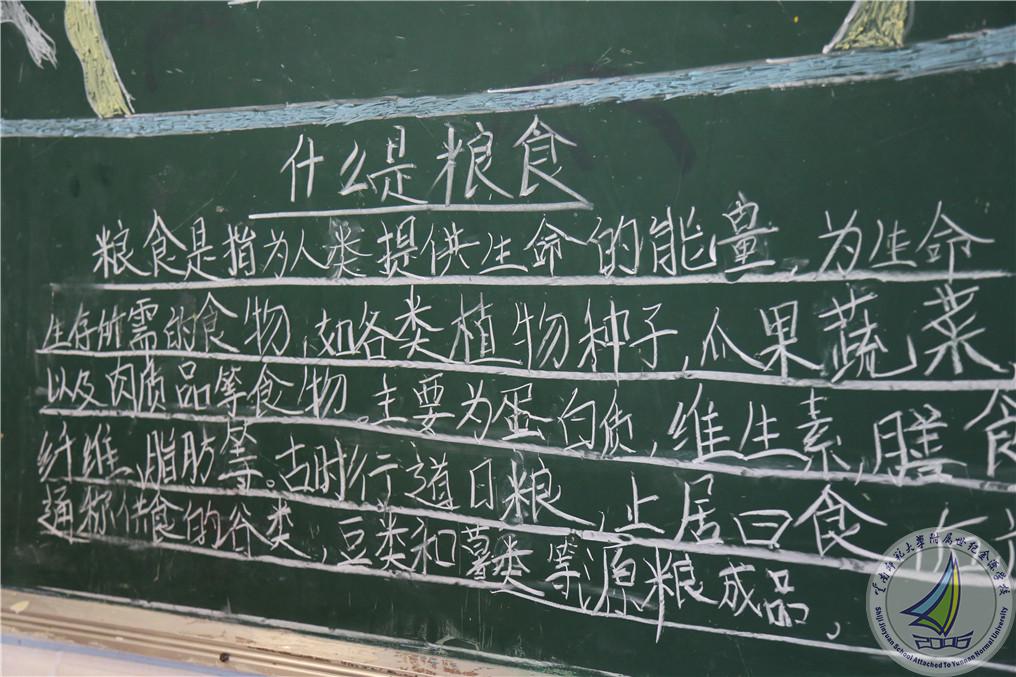 什么是粮食
粮食是指为人类提供生命的能量,为生命
生存所需的食物,如各类植物种子,瓜果蔬,菜
以及肉质品等食物,主要为蛋白质,维生素,膳食
纤维、脂肪等。古时行道曰粮,止居曰食
通称供食的谷类,豆类和薯类等源粮成品,
云南师范大学附属世纪金源学校
Shiji Jinyuan School Attached To Yunnan Normal University
2006